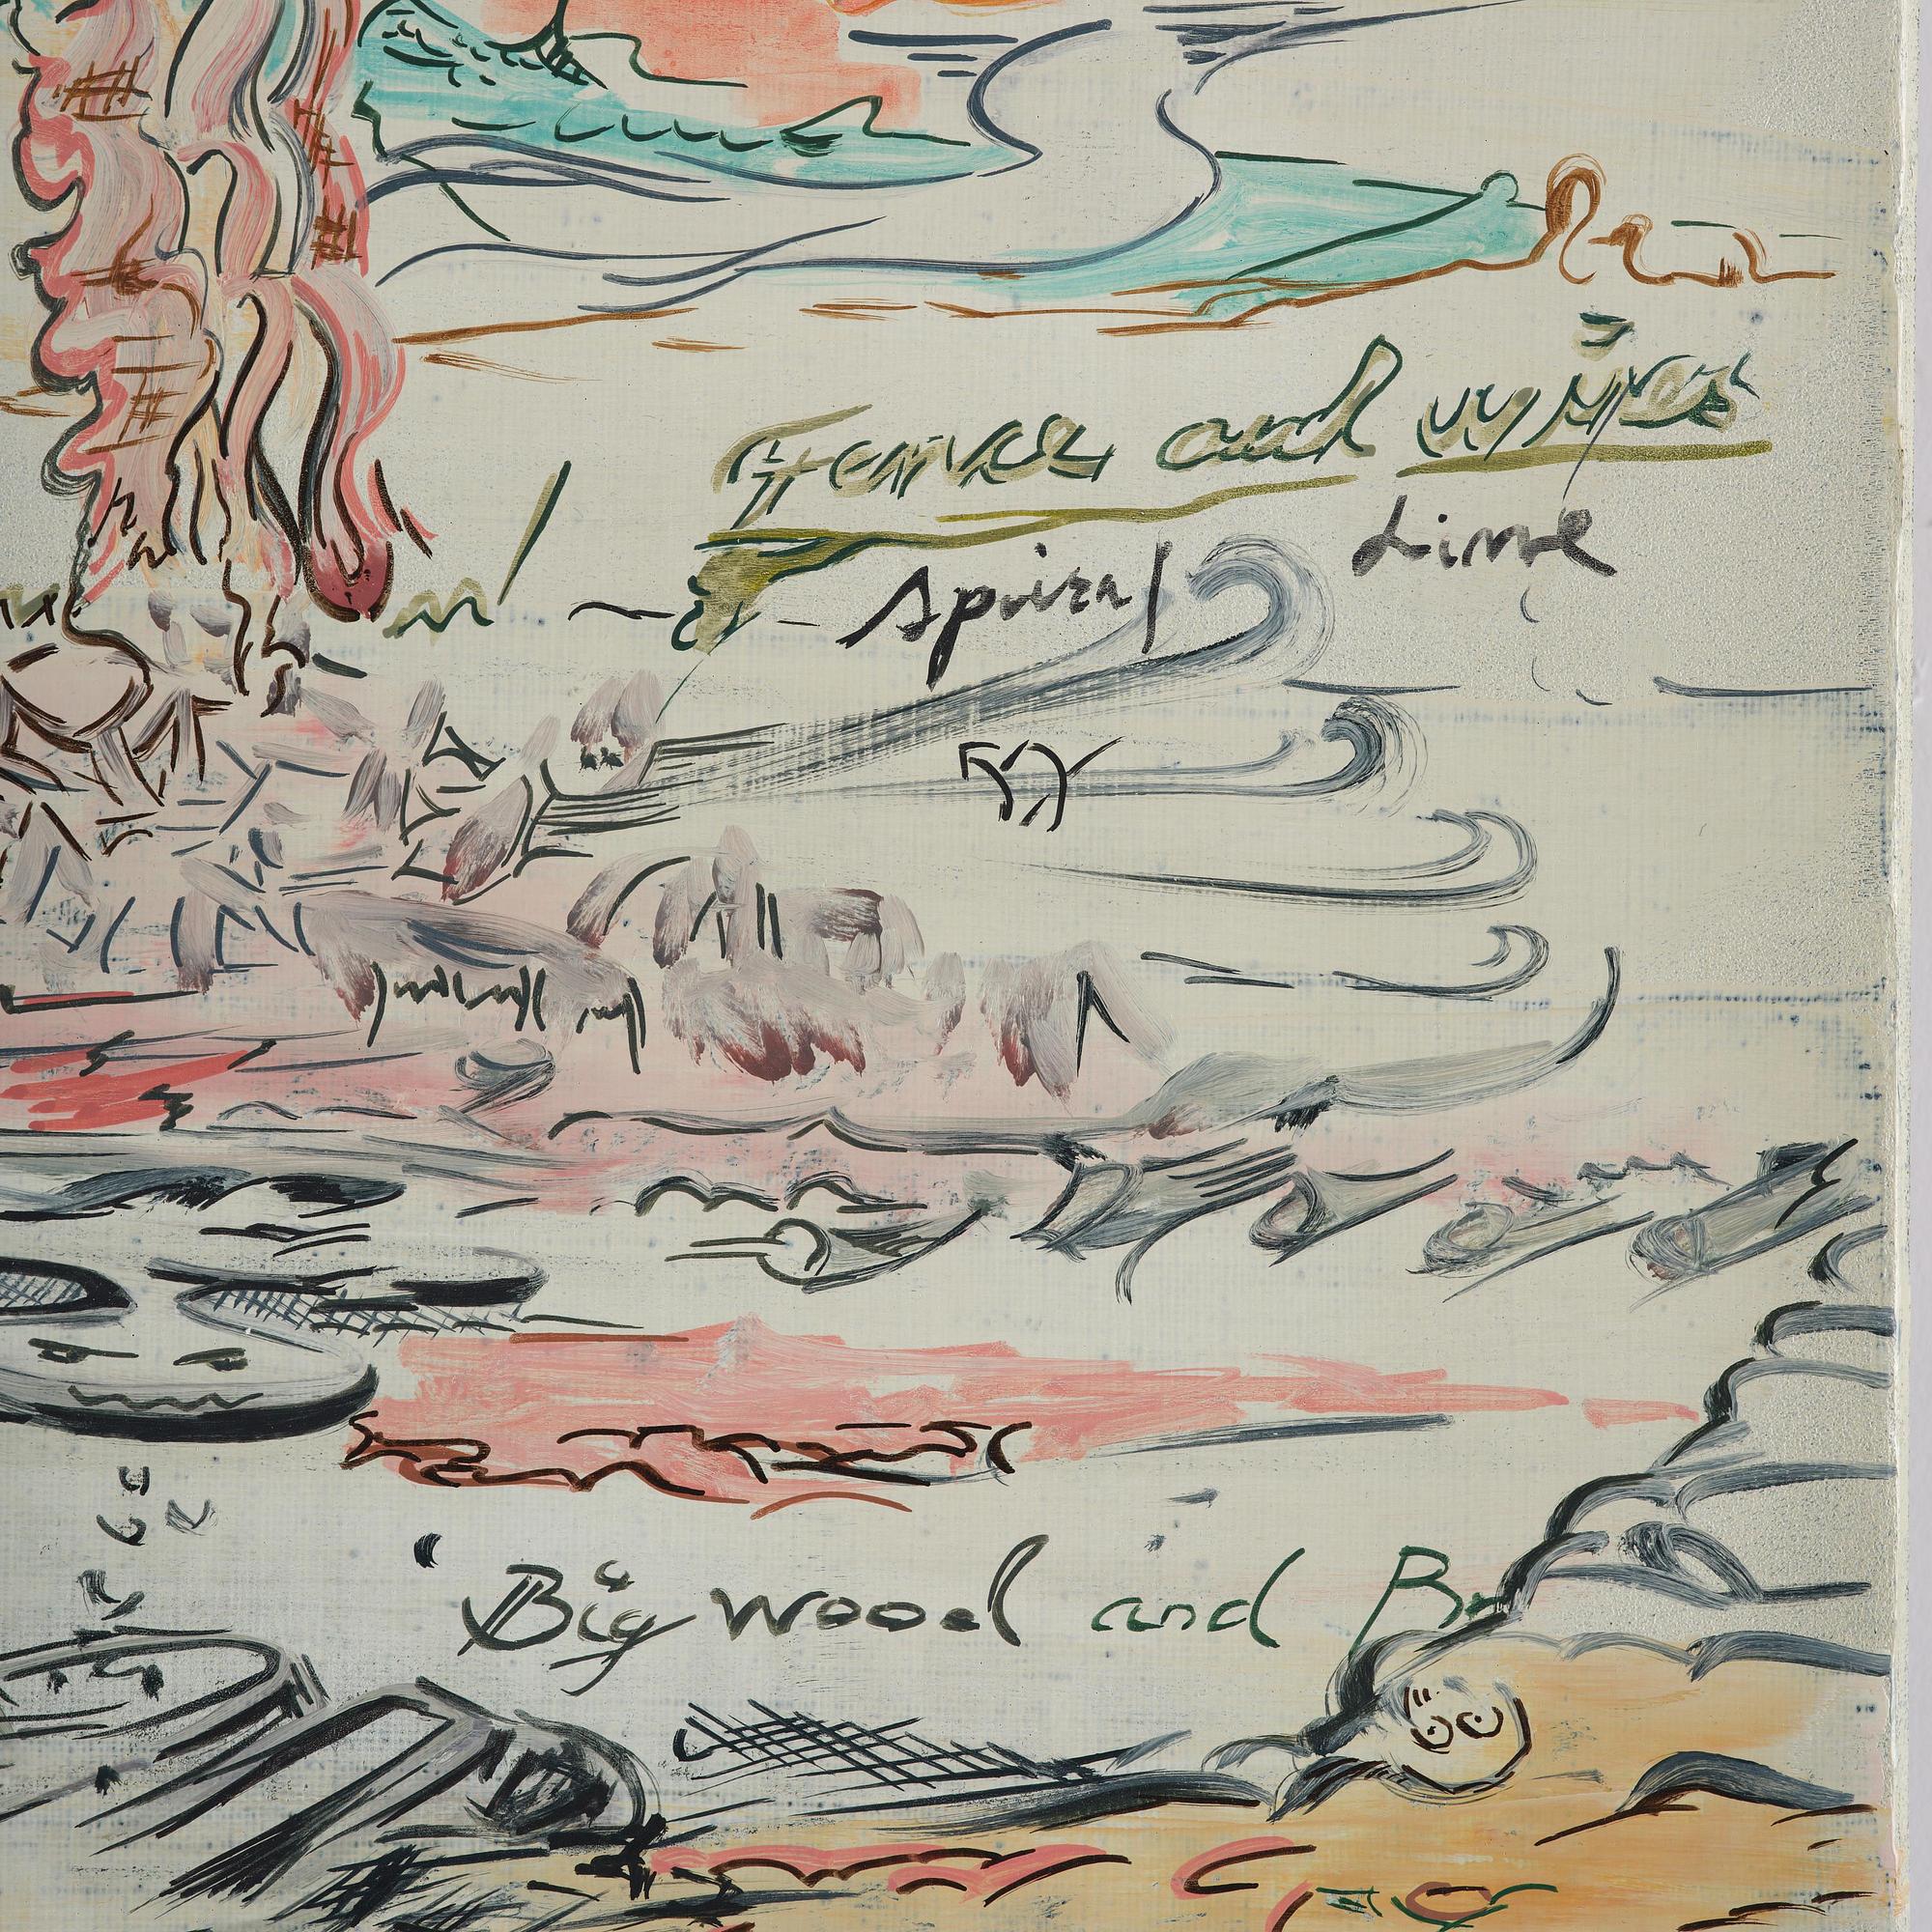 Fence and wires
Line
Spiral
Big wood and Br